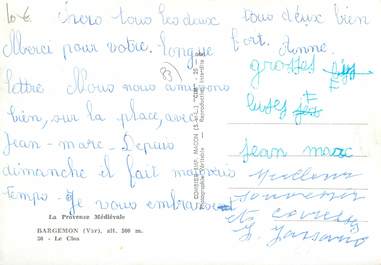 10 €
chers tous les deux
Merci pour votre longue
lettre Nous nous amusons
bien, sur la place, avec
Jean-marc. Depuis
dimanche il fait mauvais
temps. Je vous embrasse
tous deux bien
fort. Anne.
grosses
bises
jean marc
Meilleurs
souvenirs
et
83
La Provence Médiévale
BARGEMON (Var), alt. 500 m.
50 - Le Clos
COMBIER IMP. MACON (S.-et-L.) "CIM"
Photographie Véritable - Reproduction Interdite